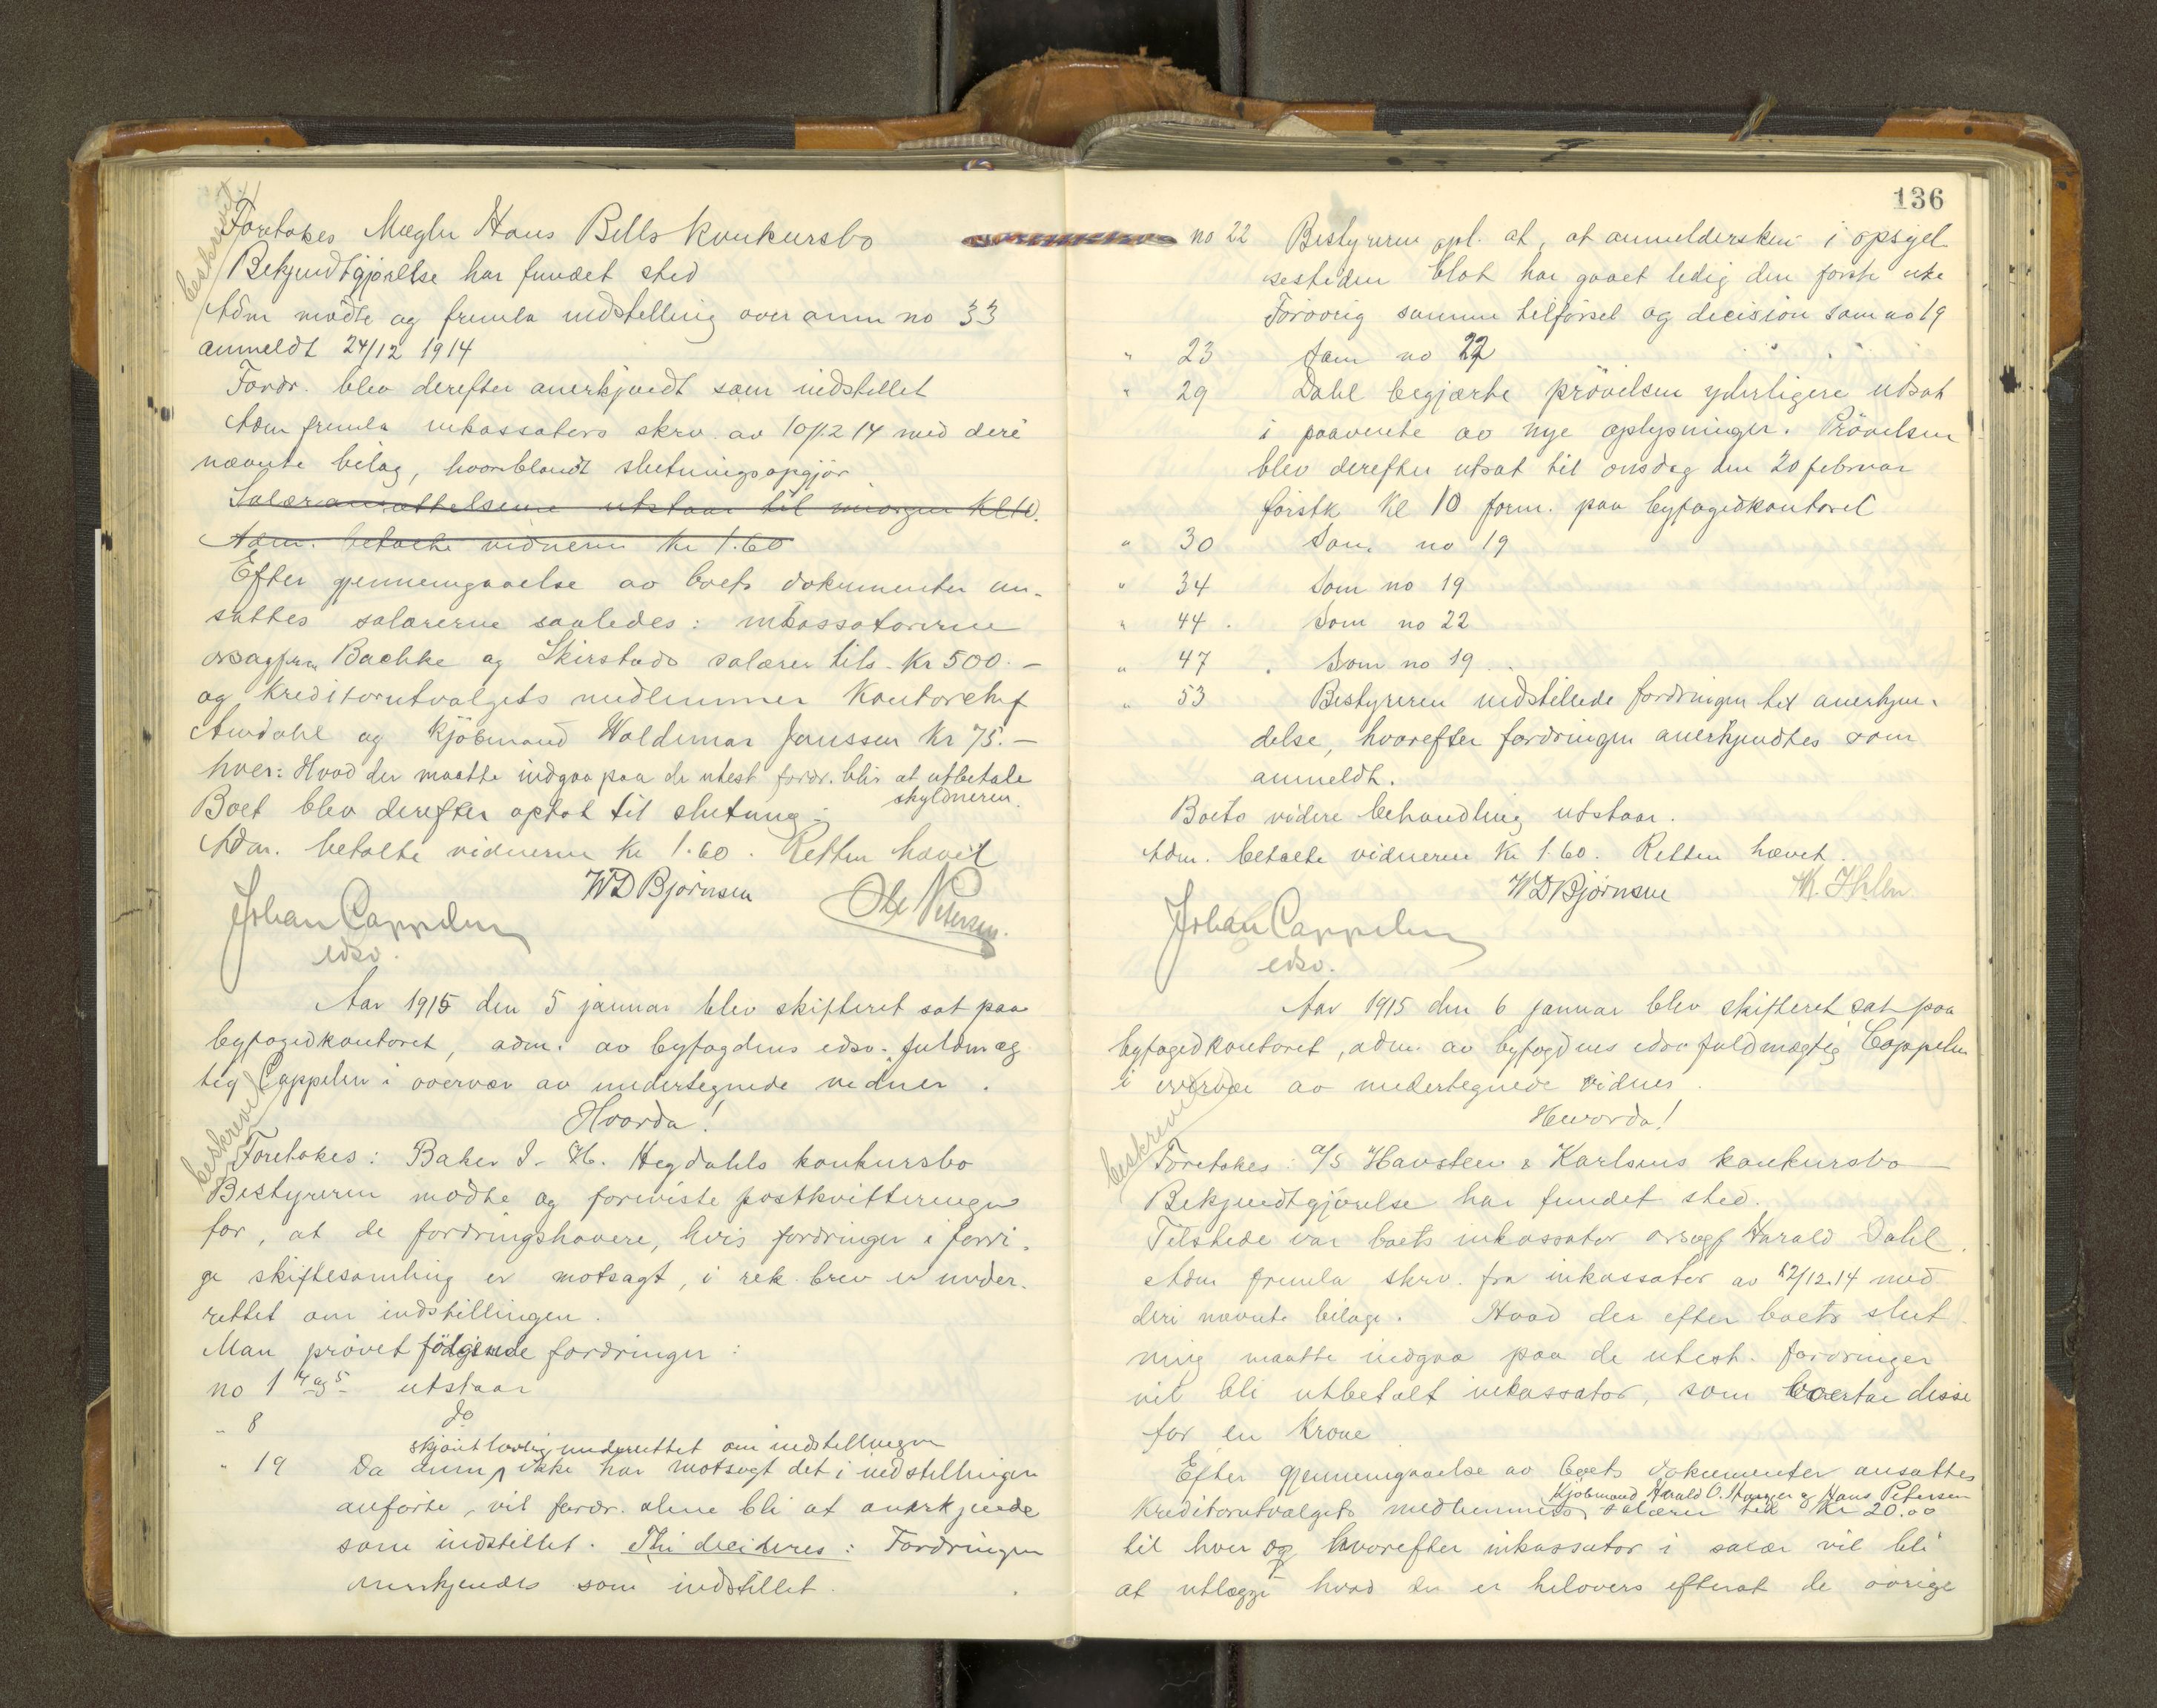 beskrevet
Foretokes Mægler Hans Bells konkursbo
Bekjendtgjørelse har fundet sted
Adm mødte og fremla indstilling over anm no 33
anmeldt 24/12 1914
Fordr. blev derefter anerkjendt som indstillet
Adm fremla inkassators skrv. av 10/12 14 med deri
nævnte bilag, hvoriblandt slutningsopgjør
Salæransættelserne utstaar til morgen Kl 10.
Adm. betalte vidnerne Kr 1.60
Efter gjennemgaaelse av boets dokumenter an-
sattes salærerne saaledes: inkassatorerne
orsagfrer Bachke og Skirstads salærer tils. Kr 500.-
og Kreditorutvalgets medlemmer Kontorchef
Amdahl og kjöbmand Waldemar Janssen Kr 75.-
hver: Hvad der maatte indgaa paa de utest fordr. blir at utbetale
skyldneren.
Boet blev derefter optat til slutning.
Adm. betalte vidnerne Kr 1.60. Retten hævet
Johan Cappelen
edsv.
W D Björnsen
Ole Petersen.
Aar 1915 den 5 januar blev skifteret sat paa
byfogedkontoret, adm. av byfogdens edsv. fuldmæg
tig Cappelen i overvær av undertegnede vidner.
Hvorda!
beskrevet
Foretokes: Baker I. H. Hegdahls konkursbo
Bestyreren mødte og foreviste postkvitteringer
for, at de fordringshavere, hvis fordringer i forri-
ge skiftesamling er motsagt, i rek. brev er under-
rettet om indstillingen.
Man prövet følgende fordringer:
no 1 4 og 5 utstaar
" 8 do
skjönt lovlig underrettet om indstillingen
" 19 Da anm ikke har motsagt det i indstillingen
anførte, vil fordr. alene bli at anerkjende
som indstillet. Thi decideres: Fordringen
anerkjendes som indstillet.
136
no 22 Bestyreren opl. at, at anmeldersken i opsigel
sestiden blot har gaaet ledig den første uke
Forövrig samme tilførsel og decision som no 19
" 23 Som no 22
" 29 Dahl begjærte prövelsen yderligere utsat
i paavente av nye oplysninger. Prövelsen
blev derefter utsat til onsdag den 20 februar
förstk Kl 10 form. paa byfogedkontoret
" 30 Som no 19
" 34 Som no 19
" 44. Som no 22
" 47. Som no 19
" 53 Bestyreren indstillede fordringen til anerkjen-
delse, hvorefter fordringen anerkjendtes som
anmeldt.
Boets videre behandling utstaar.
Adm. betalte vidnerne Kr 1.60. Retten hævet.
Johan Cappelen
edsv.
W D Björnsen
K. Ihlen
Aar 1915 den 6 januar blev skifteret sat paa
byfogedkontoret, adm. av byfogdens edsv fuldmægtig Cappelen
i overvær av undertegnede vidner.
Hvorda!
beskrevet
Foretokes: A/S Havsteen & Karlsens konkursbo
Bekjendtgjörelse har fundet sted.
Tilstede var boets inkassator orsagf Harald Dahl.
Adm fremla skrv. fra inkassator av 12/12.14 med
deri nævnte bilage. Hvad der efter boets slut
ning maatte indgaa paa de utest. fordringer
vil bli utbetalt inkassator, som overtar disse
for en Krone
Efter gjennemgaaelse av boets dokumenter ansattes
Kjöbmand Harald O. Stavger og Hans Petersen
Kreditorutvalgets medlemmers salærer til Kr 20.00
til hver og hvorefter inkassator i salær vil bli
at utlægge hvad der er tilovers efterat de övrige